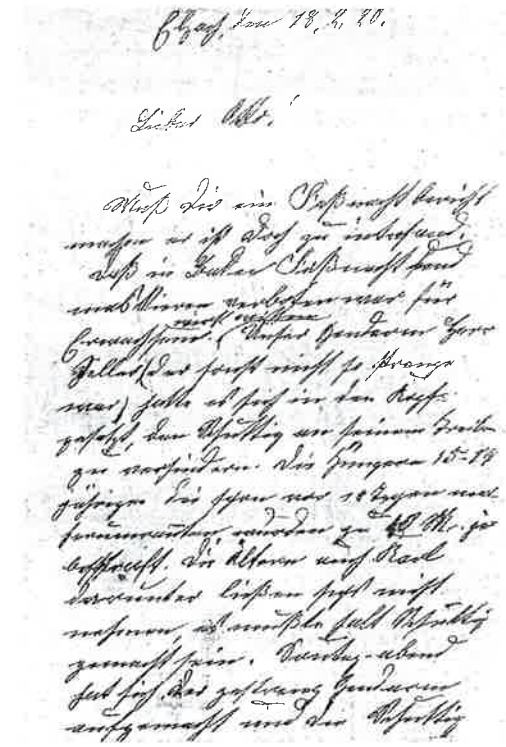 Elzach, den 18. 2. 20.
Lieber Otto!
Muß Dir ein Faßnachtbericht
machen es ist doch zu intressand.
Daß in Baden Faßnacht und
maskieren verboten war für
Erwachsene. Unser Gendarm Herr
Zeller (der sonst nicht so strenge
war) hatte es sich in den Kopf
gesetzt, den Schuttig an seinem Treiben
zu verhindern. Die jüngern 15-17
jährigen die schon vor 14 Tagen
wurden zu 10 M. je
bestraft. Die ältern auch Karl
darunter ließen sichs nicht
nehmen, es mußte halt Schuttig
gemacht sein. Sontag-abend
hat sich der Gendarm
aufgemacht und die Schuttig